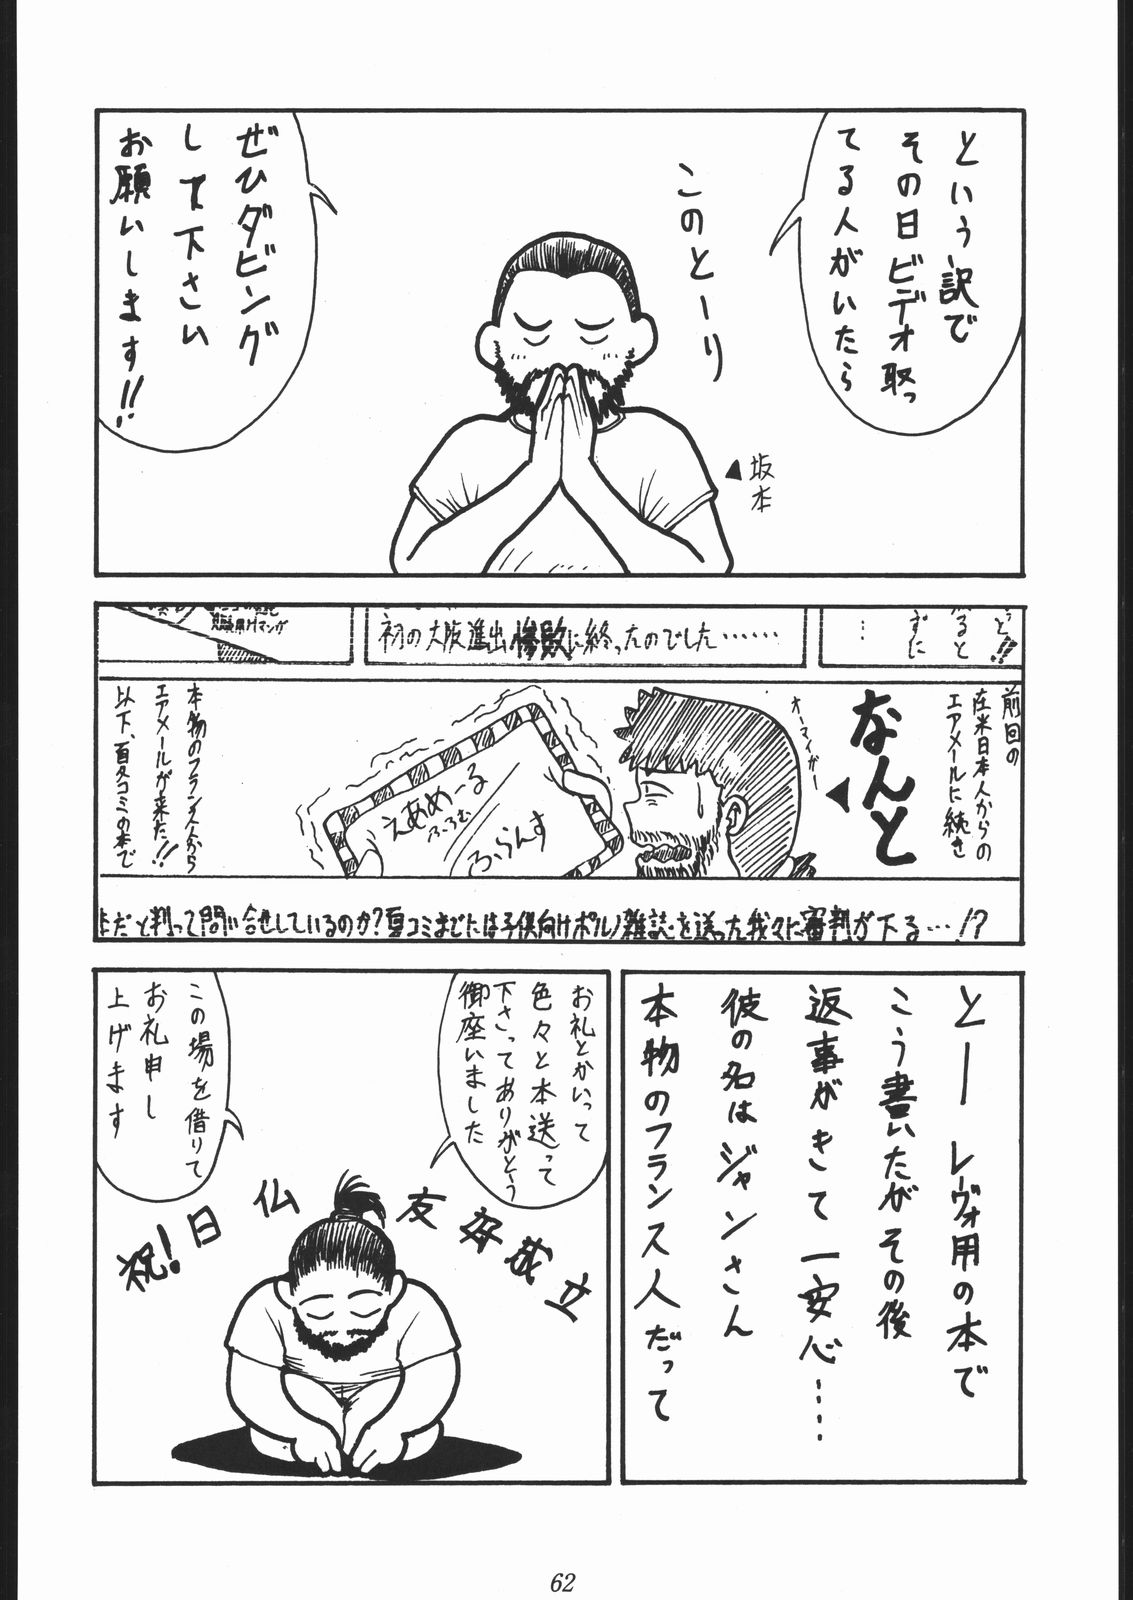 という訳で
その日ビデオ取っ
てる人がいたら
このとーり
ぜひダビング
して下さい
お願いします!!
坂本
初の大阪進出惨敗に終ったのでした……
前回の
在米日本人からの
エアメールに続き
なんと
オーマイガー
えあめーる
ふろむ
ふらんす
本物のフランス人から
エアメールが来た!!
以下、夏冬コミの本で
だと判って問い合せしているのか?夏コミまでには子供向けポルノ雑誌を送った我々に審判が下る…!?
とー レーヴォ用の本で
こう書いたがその後
返事がきて一安心……
彼の名はジャンさん
本物のフランス人だって
お礼とかいって
色々と本送って
下さってありがとう
御座いました
この場を借りて
お礼申し
上げます
祝!日仏友好成立
62